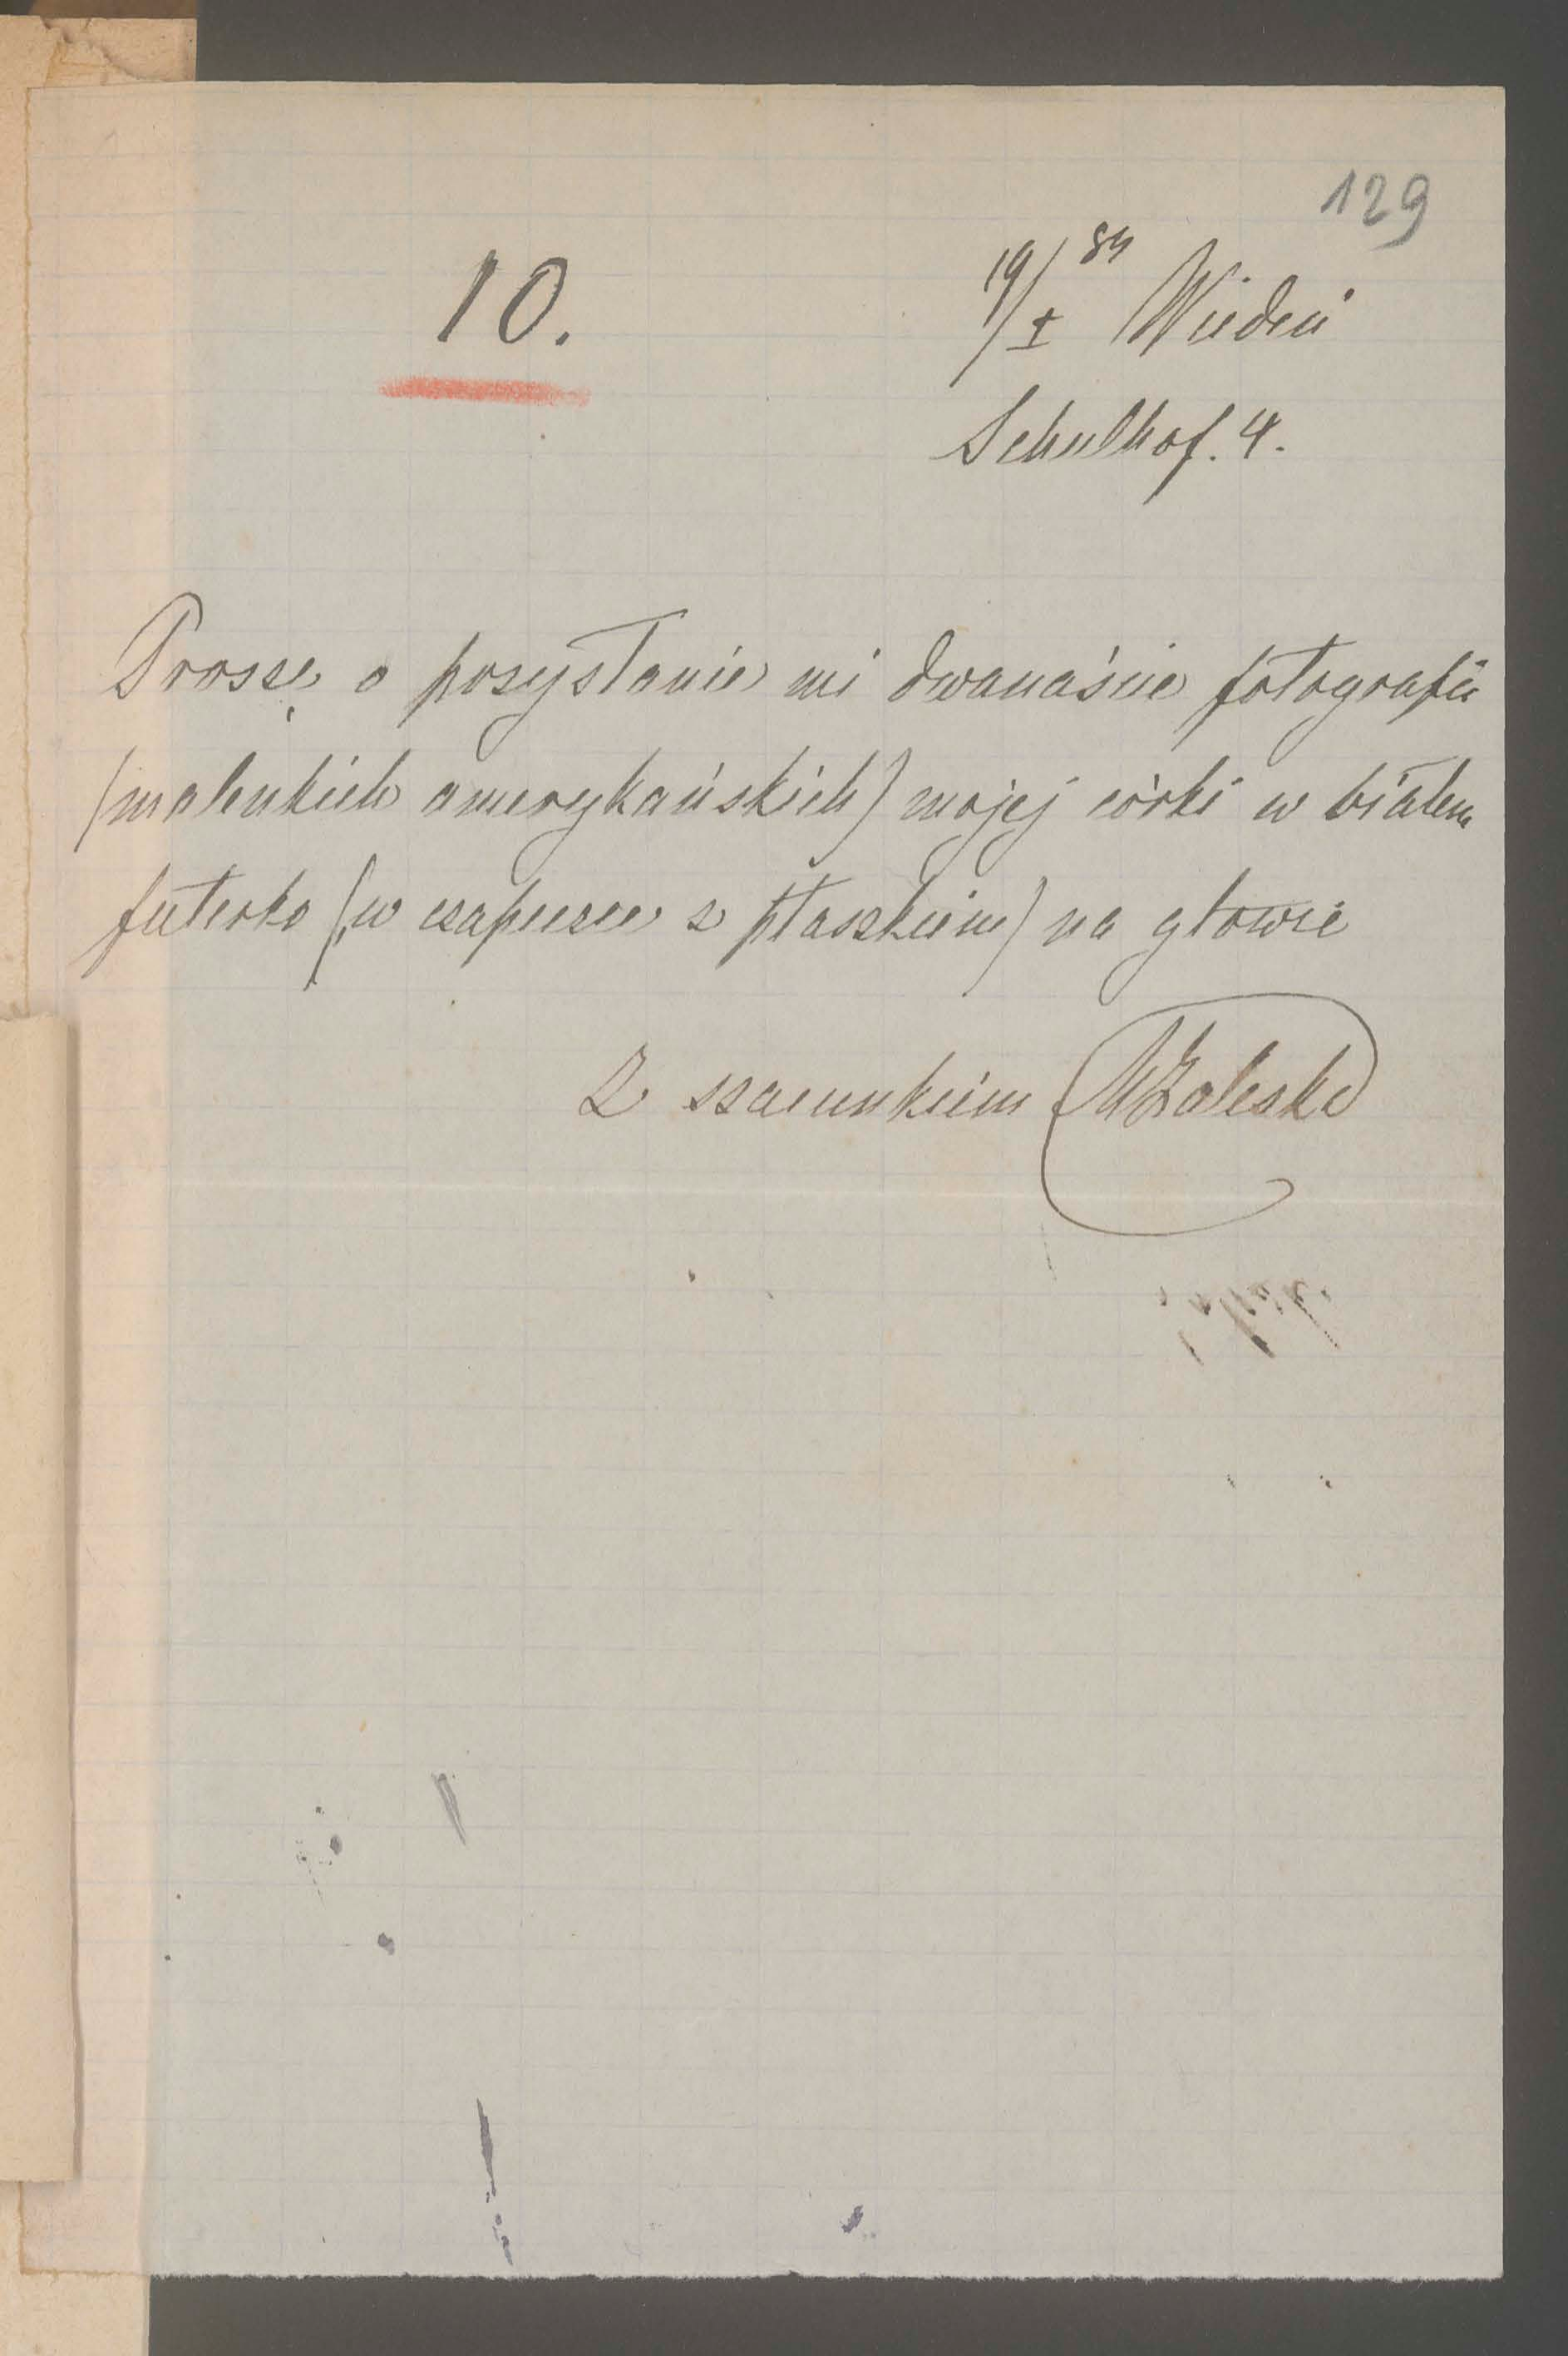 129
10.
19/I 84 Wiedeń
Schulhof. 4.
Proszę o przysłanie mi dwanaście fotografii
(malenkich amerykańskich) mojej córki w białem
futerko (w czapeczce z ptaszkiem) na głowie
Z szacunkiem MZaleska